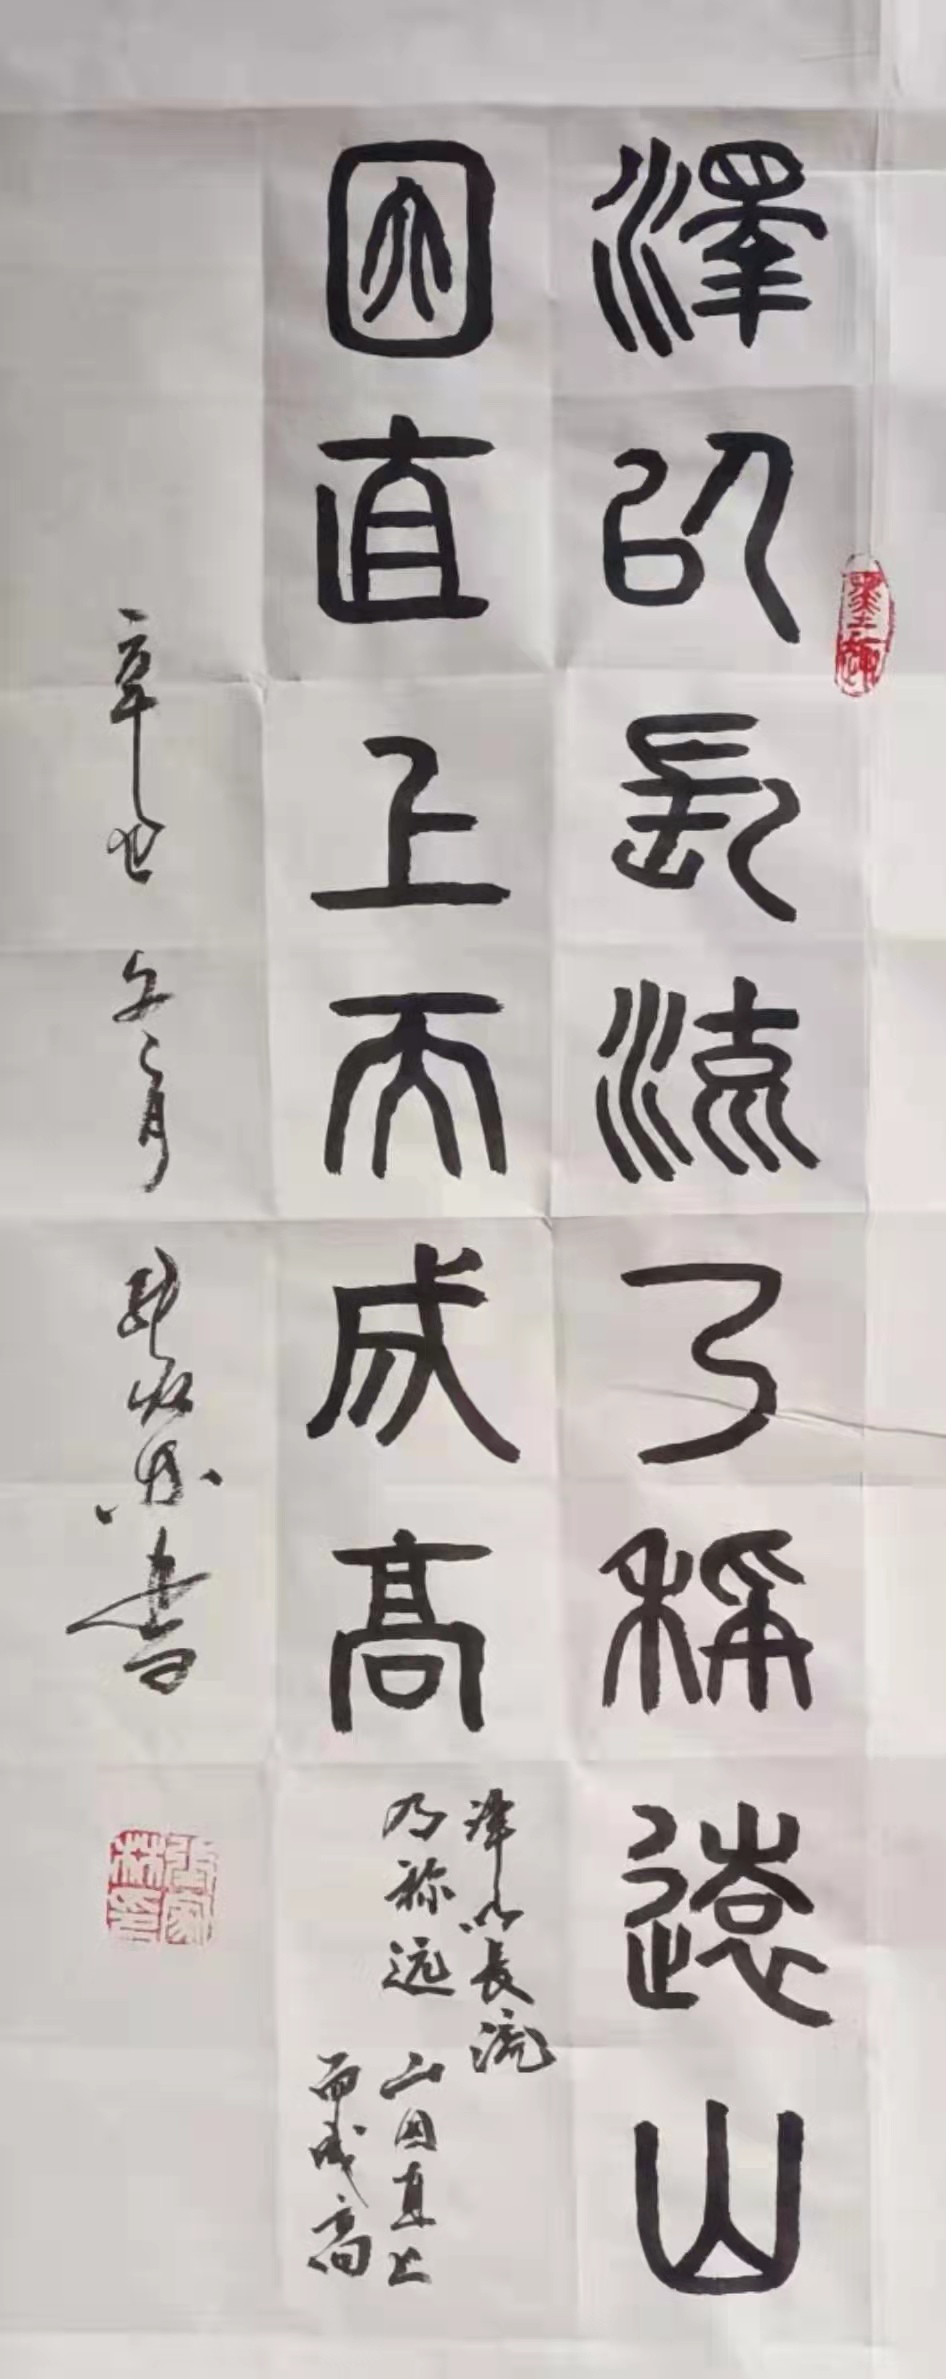 澤以長流乃稱遠山
因直上而成高
泽以長流
乃称远
山因直上
而成高
辛丑年二月
書
墨趣